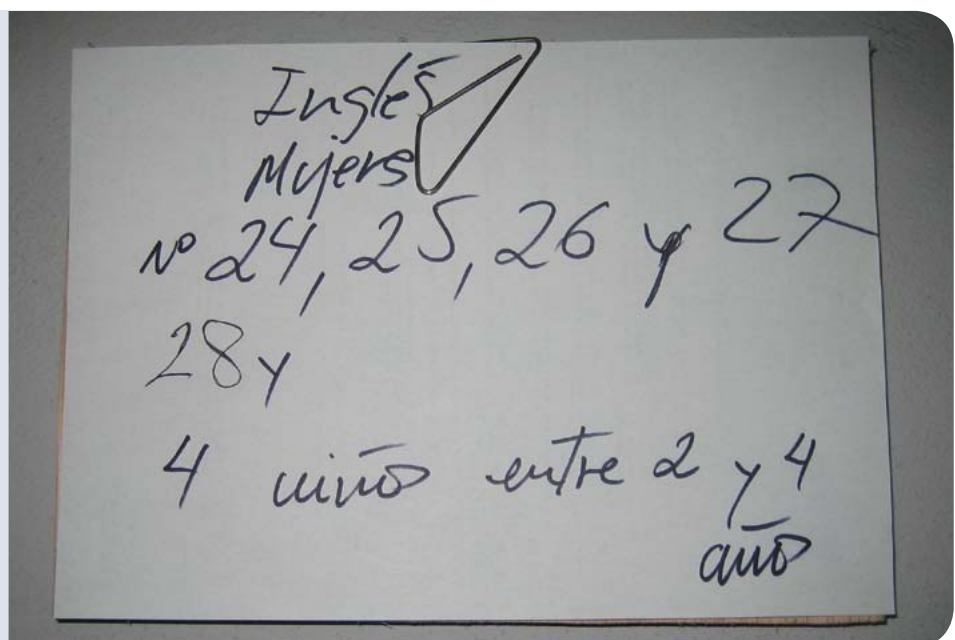 Inglés
Mujers
Nº 24, 25, 26 y 27
28 y
4 niños entre 2 y 4
años